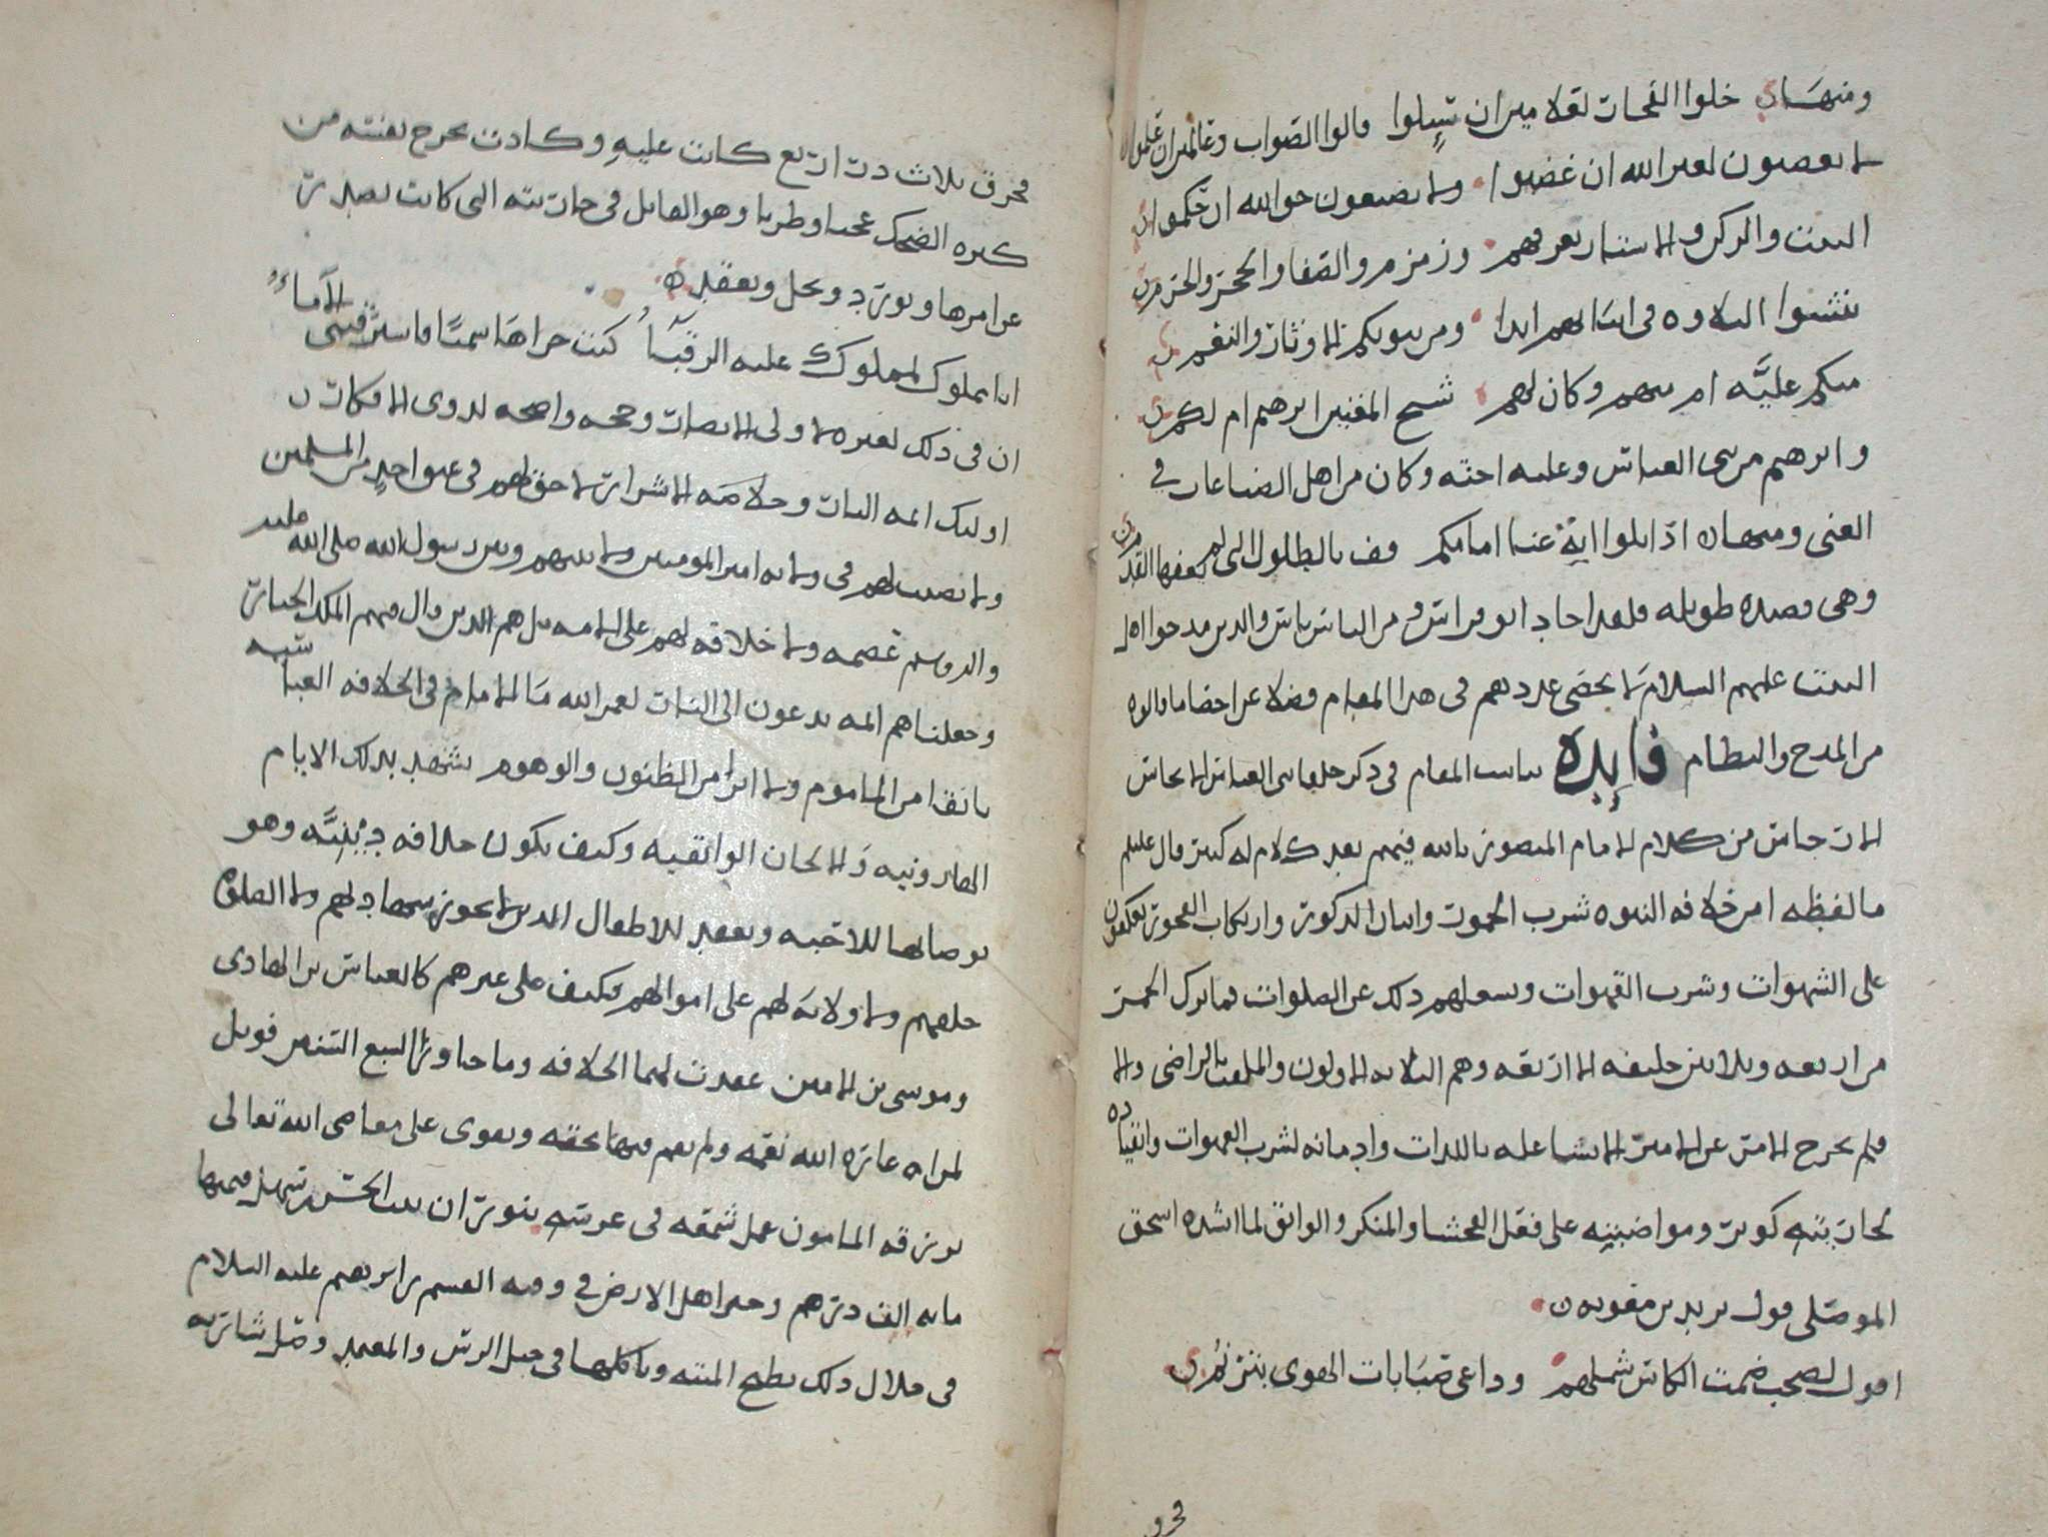 ومنها خلوا الفخار لعلامين ان سئلوا قالوا الصواب وعالمين ان علموا
لا يغضبون لغير الله ان غضبوا ولا يضيعون حق الله ان حكموا
البيت والركن والاستار يعرفهم وزمزم والصفا والحجر والحرم
تنشوا التلاوة في ابياتهم ابدا ومن بيوتكم الاوتار والنغم
منكم علية ام منهم وكان لهم شيخ المغنين ابرهيم ام لكم
وابرهيم من بني العباس وعليه اخته وكان من اهل الصناعات في
الغنى ومنها اذا تلوا اية غنا امامكم قف بالطلول التي لم يعفها القدم
وهي قصيدة طويله فلقد اجاد ابو فراس والذين مدحوا اهل
البيت عليهم السلام لا يحصى عددهم في هذا المقام فضلا عن احضا ما قالوه
من المدح والنظام فايده يناسب المقام في ذكر خلفا بني العباس الانحاس
الارجاس من كلام الامام المنصور بالله فيهم بعد كلام له كبير قال عليلم
ما لفظه امن خلافه النبوه شرب الخمور واتيان الذكور وارتكاب الفجور يعكفون
على الشهوات وشرب القهوات ويسعلهم ذلك عن الصلوات فما ترك الخمر
من اربعه وثلاثين خليفه الا اربعه وهم الثلاثه الاولون والملقب بالراضي والا
فلم يخرج الامر عن الامين الا نشاغله باللذات وادمانه لشرب القهوات وانقياده
لجاريته كوثر ومواضبته على فعل الفحشا والمنكر والواثق لما انشده اسحق
الموصلي قول يزيد بن معويه
اقول لصحب ضمت الكاس شملهم وداعى صبابات الهوى يترنم
فخرق
فخرق ثلاث دراريع كانت عليه وكادت تخرج نفسه من
كثره الضحك عجبا وطربا وهو القايل في جاريته التي كانت تصدر
عن امرها وتورد وتحل وتعقد
انا مملوك لمملوك عليه الرقبآ كنت حرا هاشميا فاسترقتني الآماء
ان في ذلك لعبره لاولي الابصار وحجه واضحه لذوي الافكار
اوليك ائمه النار وخلاصه الاشرار لا حق لهم في عنق احد من المسلمين
ولا نصيب لهم في ولايه امير المومنين ولا بينهم وبين رسول الله صلى الله عليه
واله وسلم عصمه ولا خلافه لهم على الامه بل هم الذين قال فيهم الملك الجبار
وجعلناهم ائمه يدعون الى النار لعمر الله ما الامام في الخلافه العباسيه
بانقا من الماموم ولا ابرا من الظنون والوهوم يشهد بذلك الايام
الهارونيه والالحان الواثقيه وكيف يكون خلافه دينيه وهو
يوصا بها للاجنه ويعقد للاطفال الذين لا يجوز شهادتهم ولا الصلوة
خلفهم ولا ولايه لهم على اموالهم فكيف على غيرهم كالعباس بن الهادي
وموسى بن الامين عقدت لهما الخلافه وما جاوزا السبع السنين فويل
لمراه عازه الله نعمه ولم يعم فيها بحقه وتقوى على معاصي الله تعالى
برزقه المامون عمل شمعه في عرسه ببوران بنت الحسن بن سهل قيمتها
مايه الف درهم وخير اهل الارض في وقته القسم بن ابرهيم عليه السلام
في خلال ذلك يطبخ الميته وياكلها في جبل الرس والمعتمد وصل شاريه